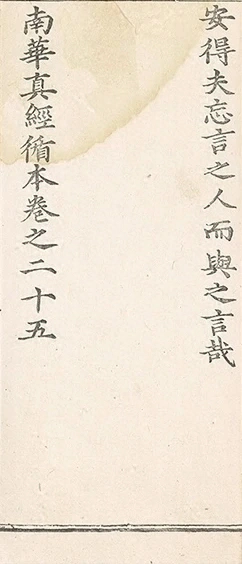 安得夫忘言之人而與之言哉
南華真經循本卷之二十五